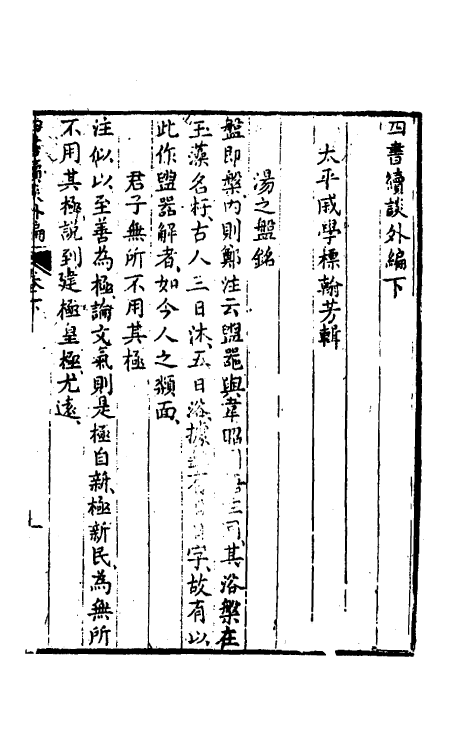 四書續談外編下
太平戚學標翰芳輯
湯之盤銘
盤即槃內則鄭注云盥器與韋昭同其浴槃在
玉藻名杅古人三日沐五日浴據日字故有以
此作盥器解者如今人之頮面
君子無所不用其極
注似以至善為極論文氣則是極自新極新民為無所
不用其極說到建極皇極尤遠